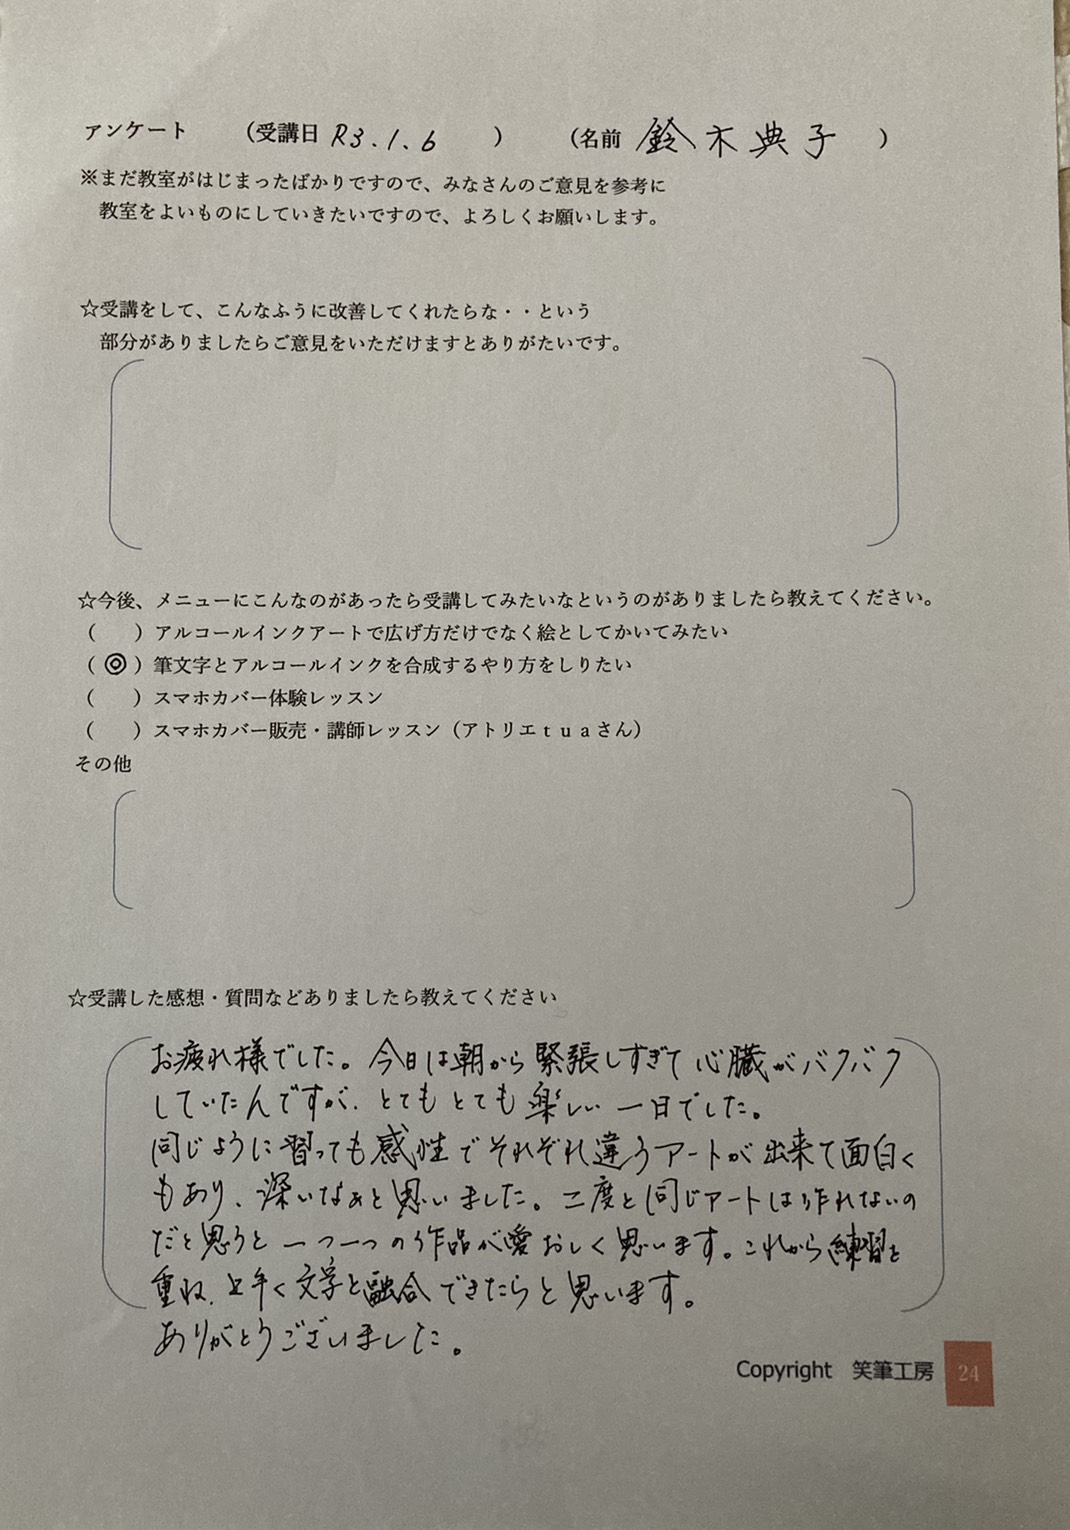 アンケート　（受講日 R3.1.6 ）　（名前 鈴木典子 ）
※まだ教室がはじまったばかりですので、みなさんのご意見を参考に
教室をよいものにしていきたいですので、よろしくお願いします。
☆受講をして、こんなふうに改善してくれたらな・・という
部分がありましたらご意見をいただけますとありがたいです。
☆今後、メニューにこんなのがあったら受講してみたいなというのがありましたら教えてください。
（　　）アルコールインクアートで広げ方だけでなく絵としてかいてみたい
（ ◎ ）筆文字とアルコールインクを合成するやり方をしりたい
（　　）スマホカバー体験レッスン
（　　）スマホカバー販売・講師レッスン（アトリエｔｕａさん）
その他
☆受講した感想・質問などありましたら教えてください
お疲れ様でした。今日は朝から緊張しすぎて心臓がバクバク
していたんですが、とてもとても楽しい一日でした。
同じように習っても感性でそれぞれ違うアートが出来て面白く
もあり、深いなぁと思いました。二度と同じアートは作れないの
だと思うと一つ一つの作品が愛おしく思います。これから練習を
重ね、上手く文字と融合できたらと思います。
ありがとうございました。
Copyright　笑筆工房　24